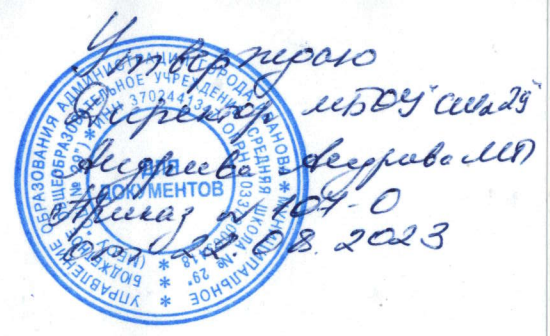 Утверждаю
Директор МБОУ "СШ №29"
Приказ № 107-О
от 22.08.2023
УПРАВЛЕНИЕ ОБРАЗОВАНИЯ АДМИНИСТРАЦИИ ГОРОДА ИВАНОВА * МУНИЦИПАЛЬНОЕ
БЮДЖЕТНОЕ ОБЩЕОБРАЗОВАТЕЛЬНОЕ УЧРЕЖДЕНИЕ "СРЕДНЯЯ ШКОЛА № 29"
ДЛЯ
ДОКУМЕНТОВ